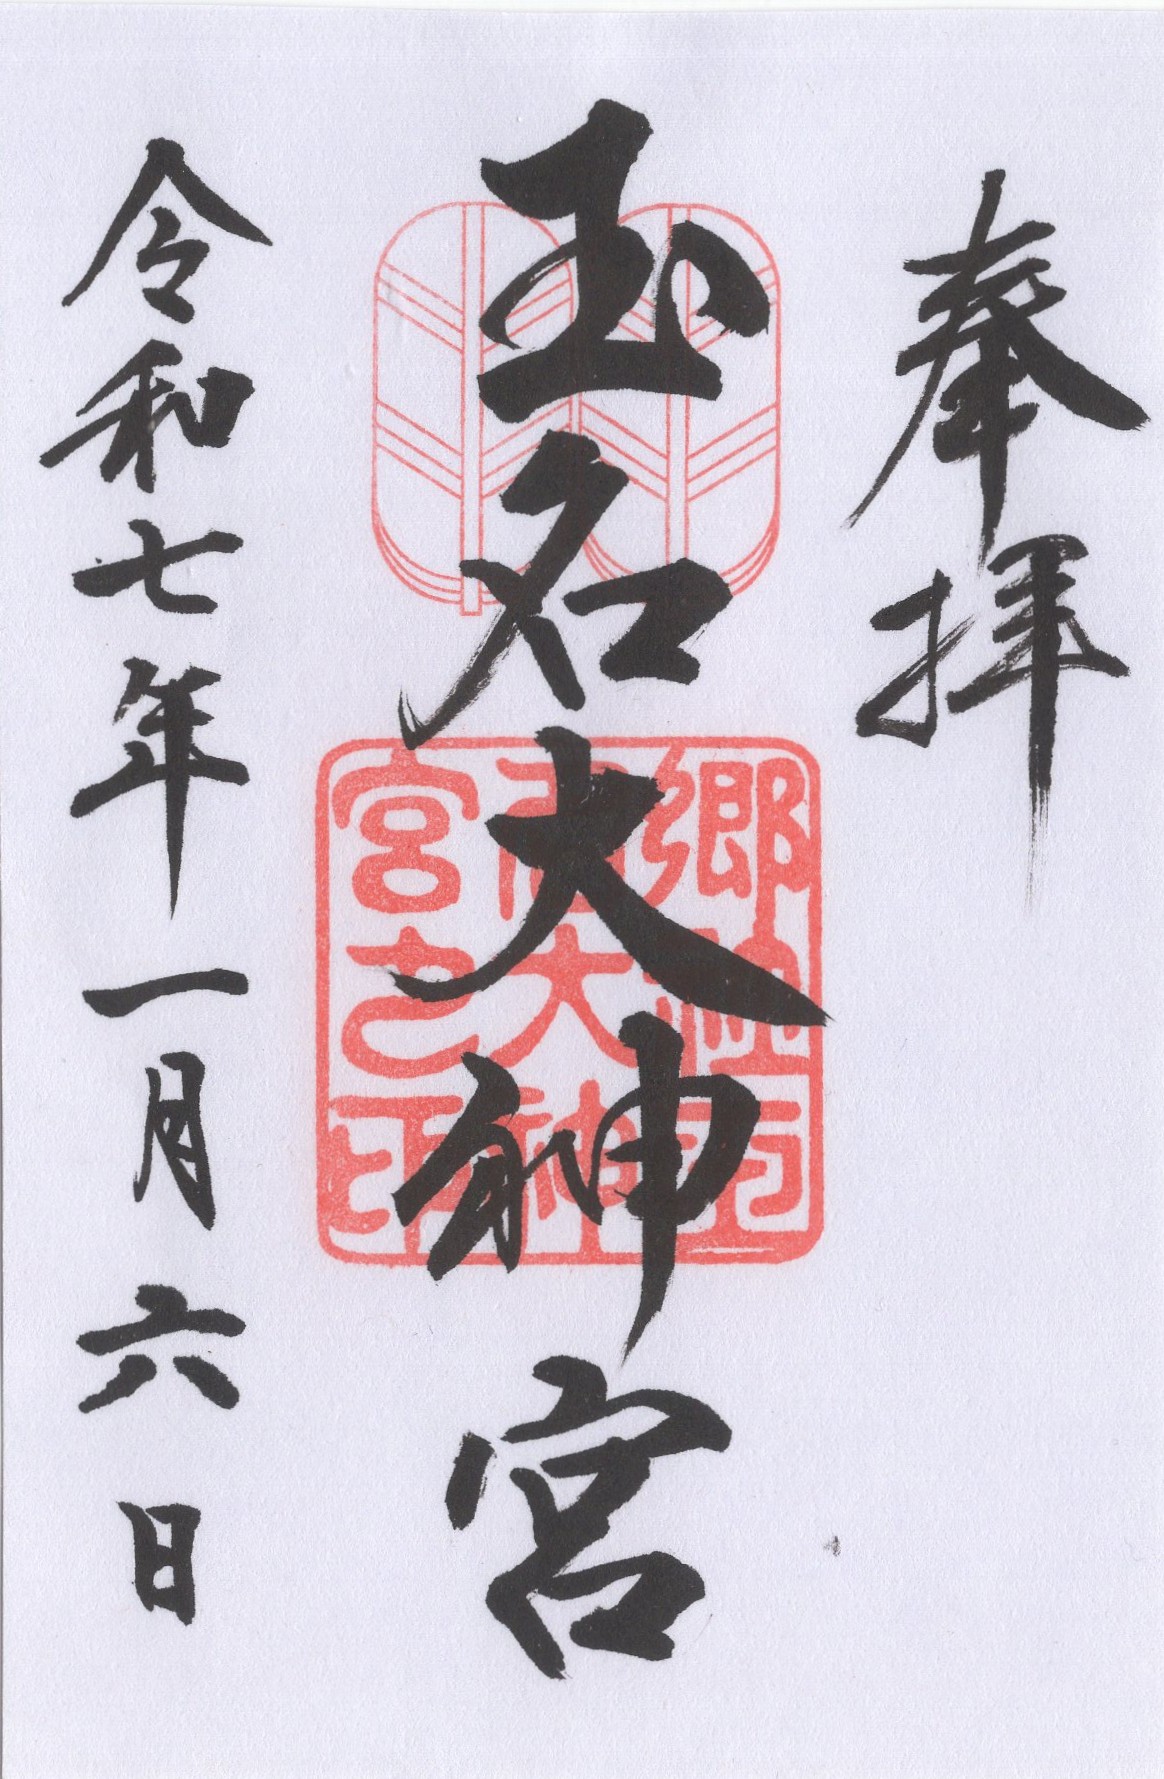 奉拝
玉名大神宮
令和七年一月六日
郷社
大神
宮之印